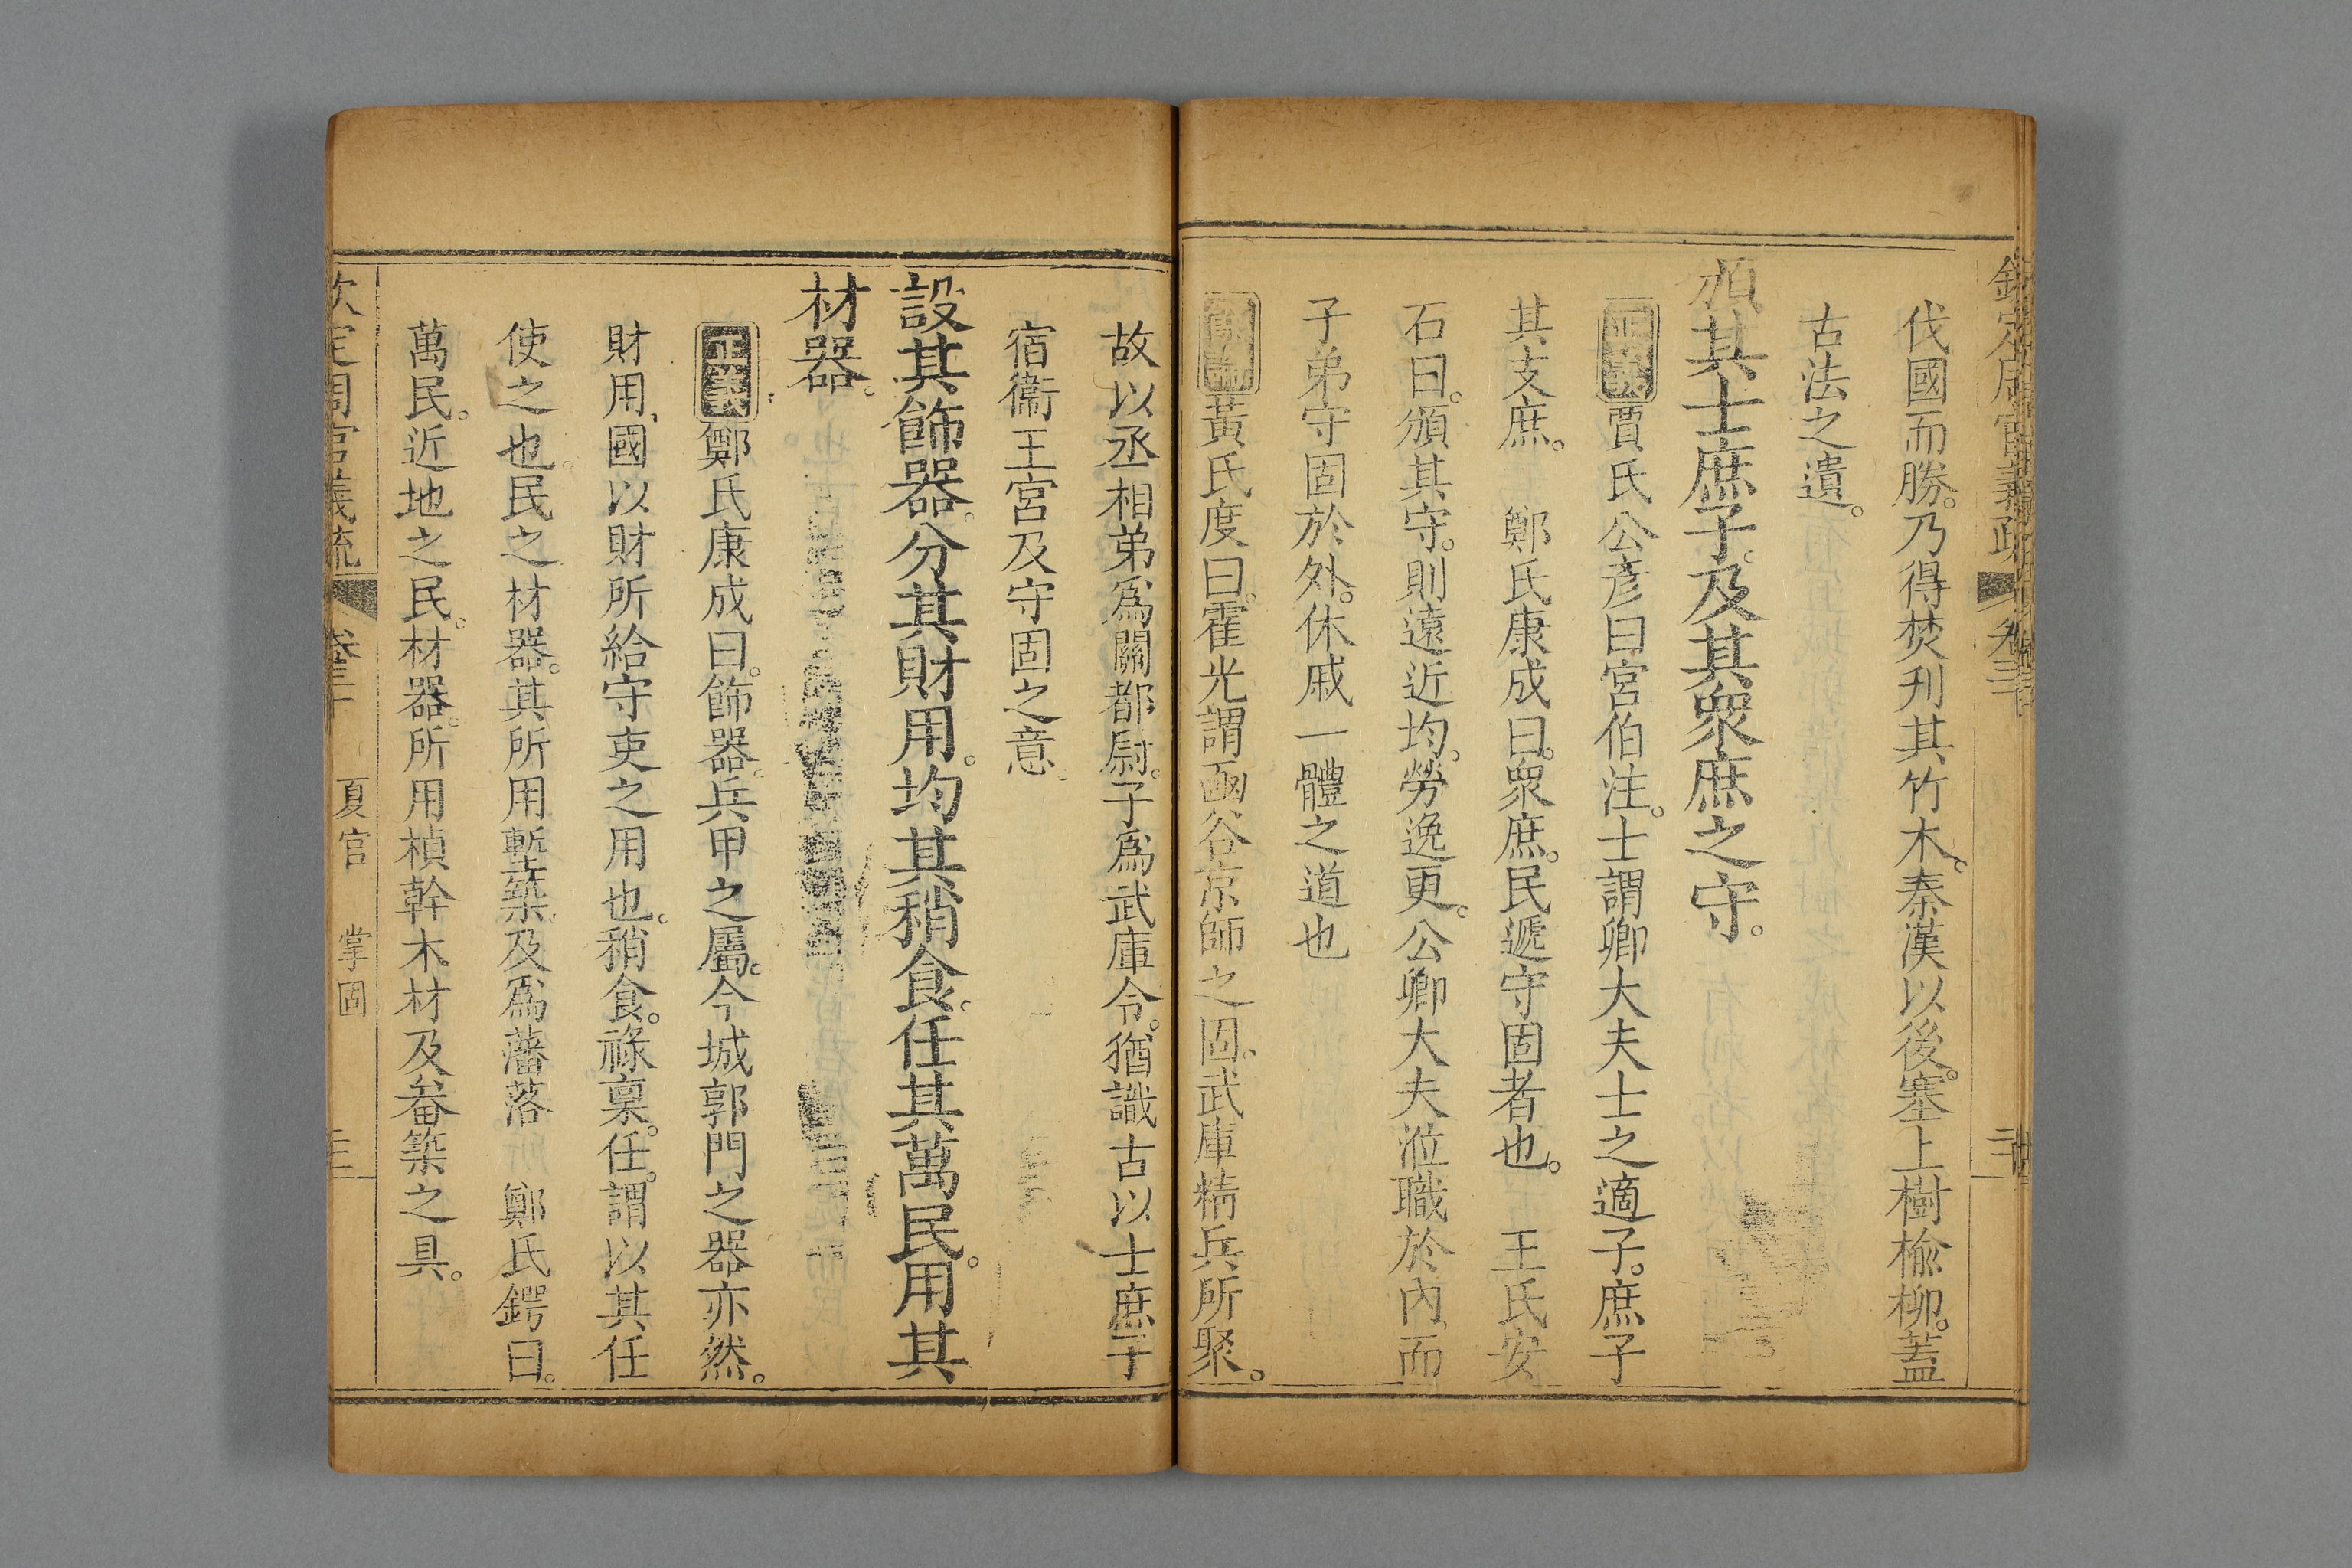 欽定周官義疏 卷三十
伐國而勝。乃得焚刋其竹木。秦漢以後。塞上樹榆柳。蓋
古法之遺。
頒其士庶子。及其衆庶之守。
正義賈氏公彥曰宮伯注。士謂卿大夫士之適子。庶子
其支庶。 鄭氏康成曰。衆庶。民遞守固者也。 王氏安
石曰。頒其守。則遠近均。勞逸更。公卿大夫涖職於內。而
子弟守固於外。休戚一體之道也
黃氏度曰。霍光謂函谷京師之固。武庫精兵所聚。
故以丞相弟爲關都尉。子爲武庫令。猶識古以士庶子
宿衞王宮及守固之意
設其飾器。分其財用。均其稍食。任其萬民。用其
材器。
正義鄭氏康成曰。飾器。兵甲之屬。今城郭門之器亦然。
財用、國以財所給守吏之用也。稍食。祿稟。任。謂以其任
使之也。民之材器。其所用塹築。及爲藩落 鄭氏鍔曰。
萬民。近地之民。材器。所用楨幹木材及畚築之具。
欽定周官義疏 卷三十 夏官 掌固